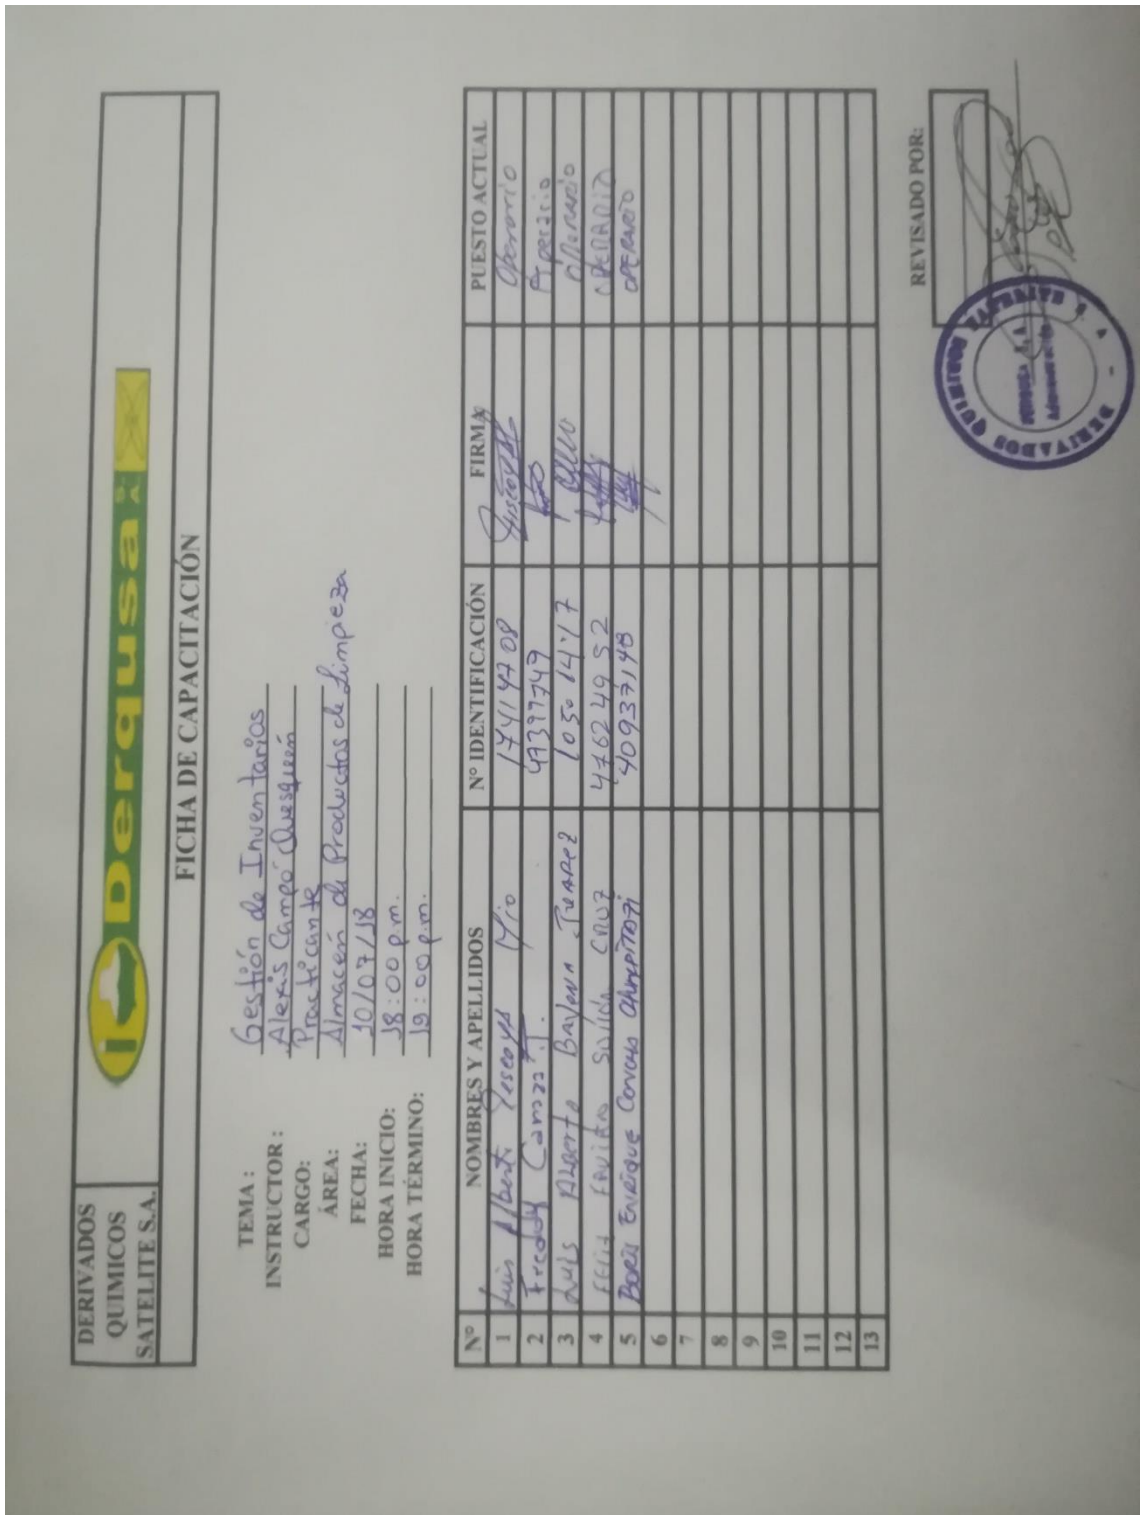 DERIVADOS
QUIMICOS
SATELITE S.A.
Derqusa
FICHA DE CAPACITACIÓN
TEMA : Gestión de Inventarios
INSTRUCTOR : Alexis Campó Quesquén
CARGO: Practicante
ÁREA: Almacén de Productos de Limpieza
FECHA: 10/07/18
HORA INICIO: 18:00 p.m.
HORA TÉRMINO: 19:00 p.m.
Nº NOMBRES Y APELLIDOS Nº IDENTIFICACIÓN FIRMA PUESTO ACTUAL
1 Luis Albert Yescoya 17414708 Operario
2 Freddy 47397749 Operario
3 Luis Alberto Bayona Juarez Operario
4 Felix CRUZ 47624952 OPERARIO
5 Boris Enrique 40937148 OPERARIO
6
7
8
9
10
11
12
13
REVISADO POR:
DERIVADOS QUIMICOS SATELITE S.A.